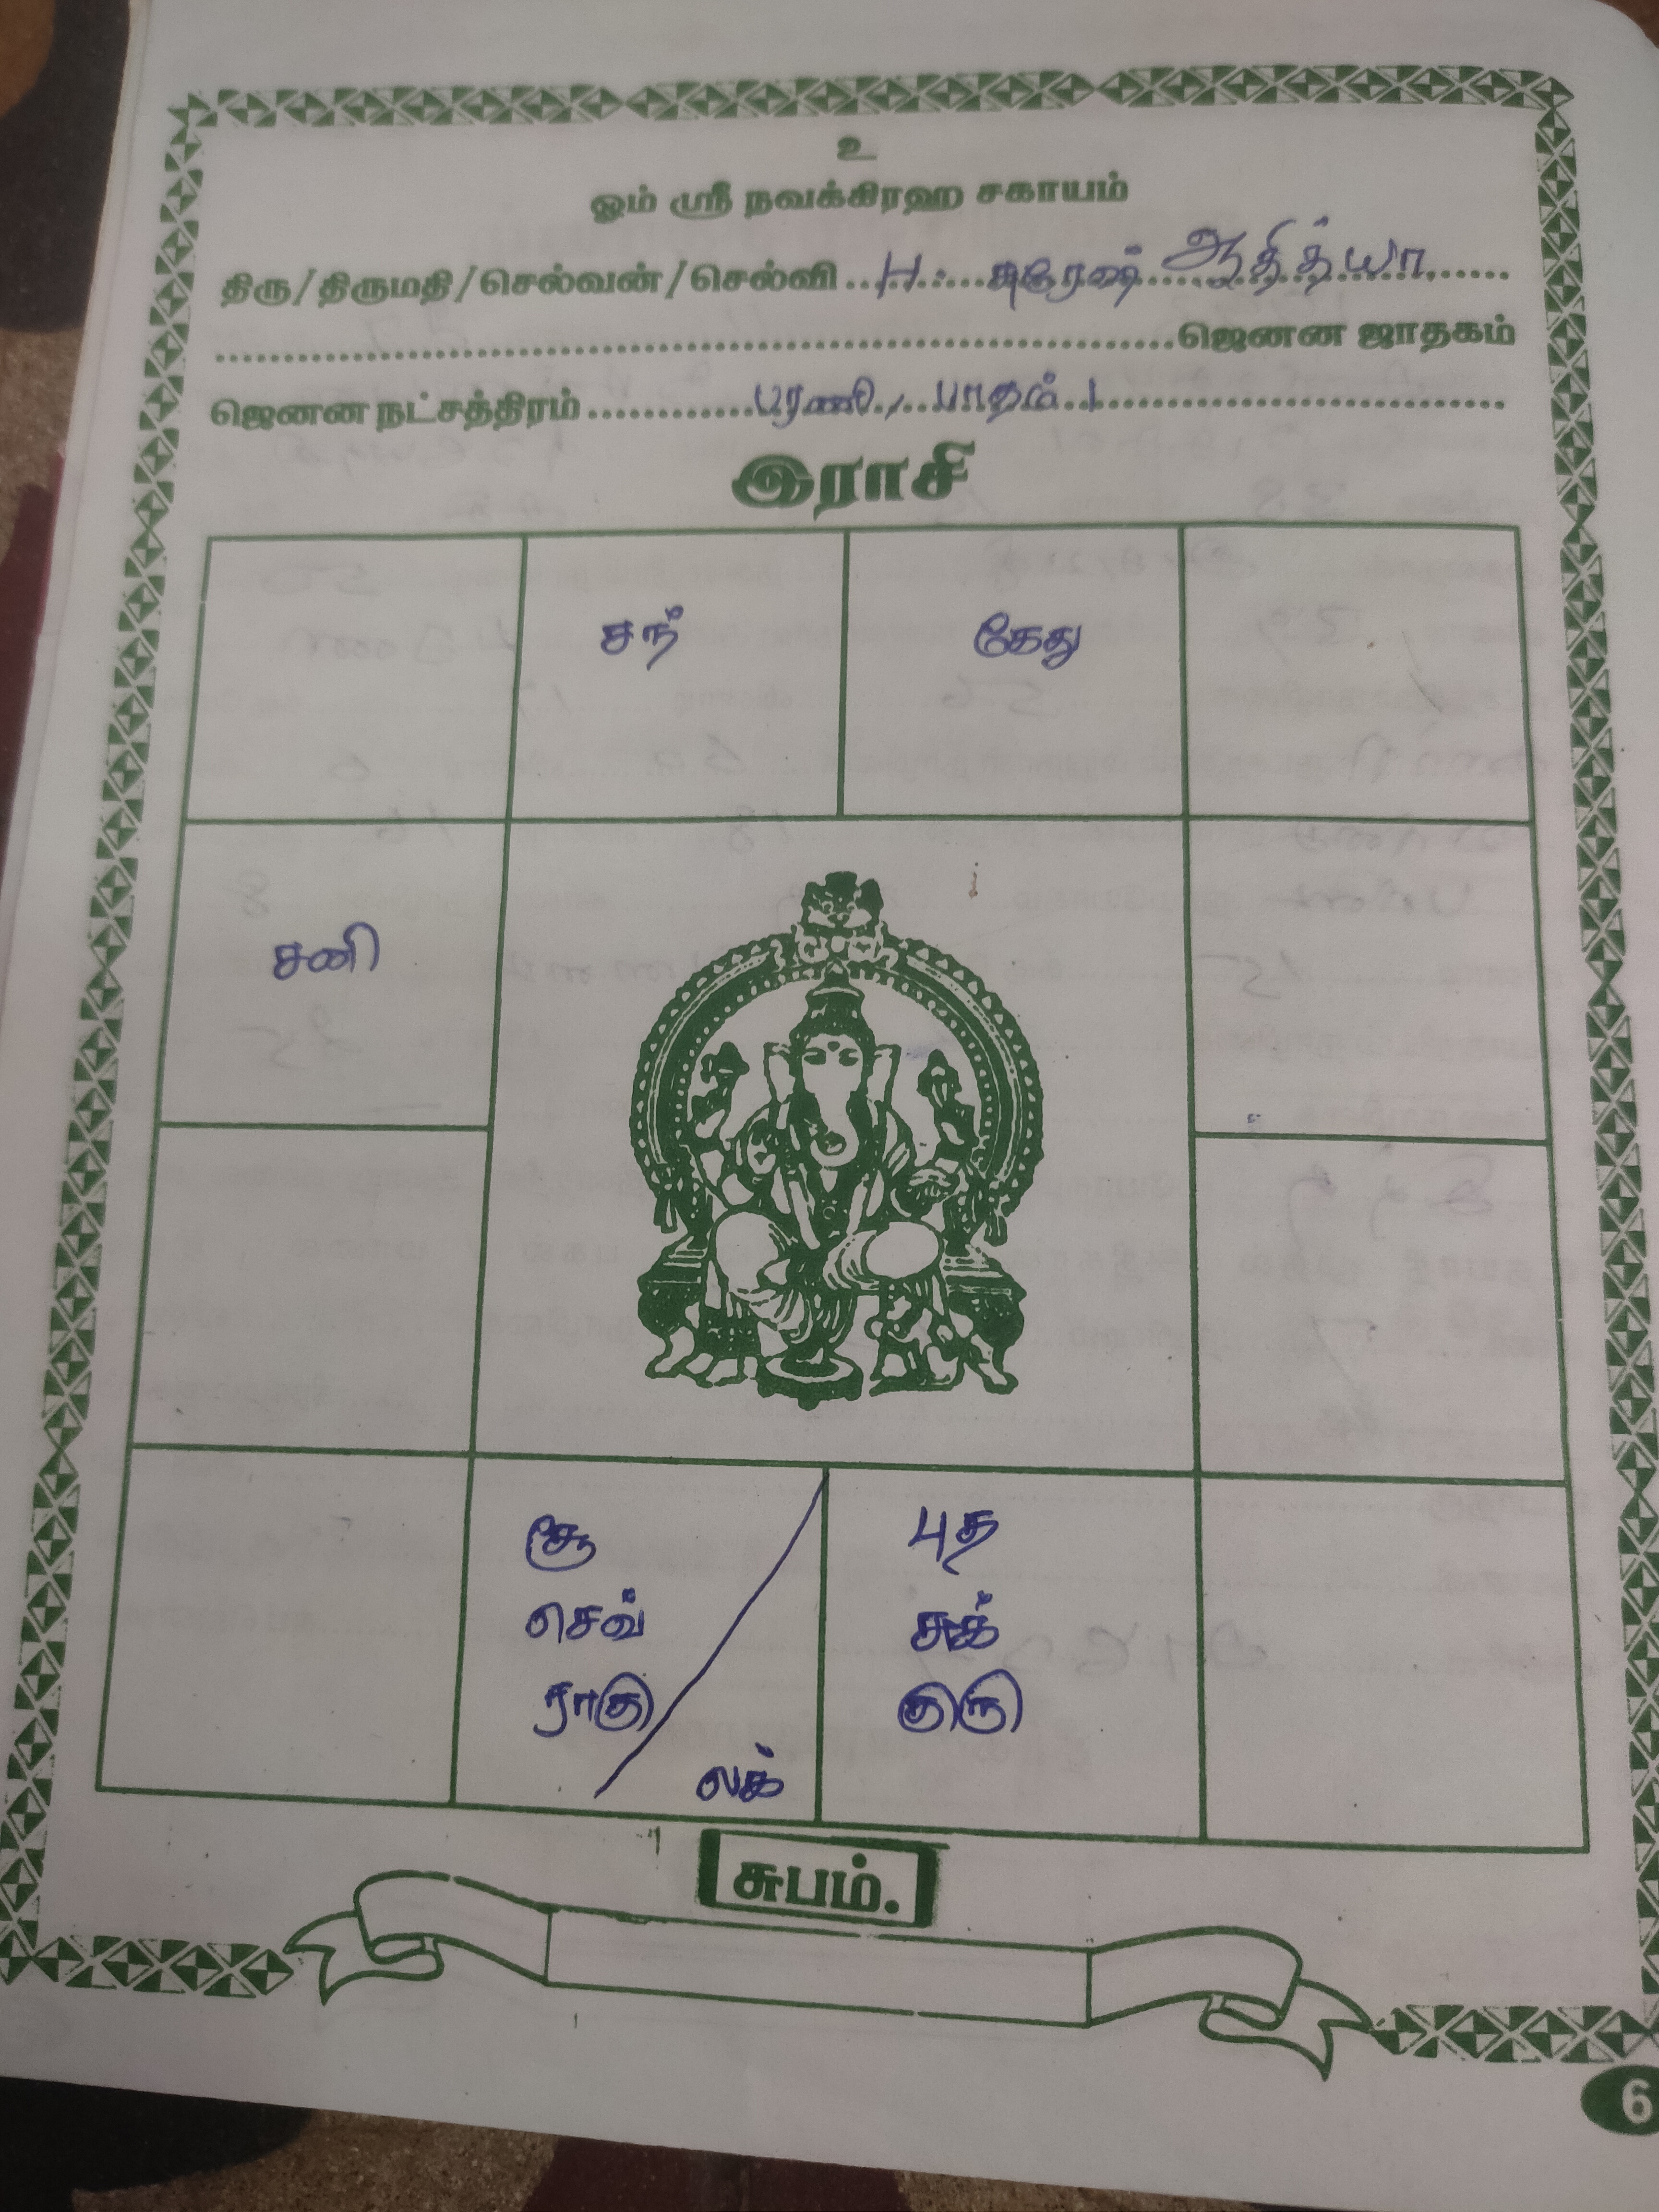 உ
ஓம் ஸ்ரீ நவக்கிரஹ சகாயம்
திரு/திருமதி/செல்வன்/செல்வி ..H. சுரேஷ் ஆதித்யா
ஜெனன ஜாதகம்
ஜெனன நட்சத்திரம் பரணி, பாதம் 1
இராசி
சந் கேது
சனி
சூ புத
செவ் சுக்
ராகு குரு
லக்
சுபம்.
6